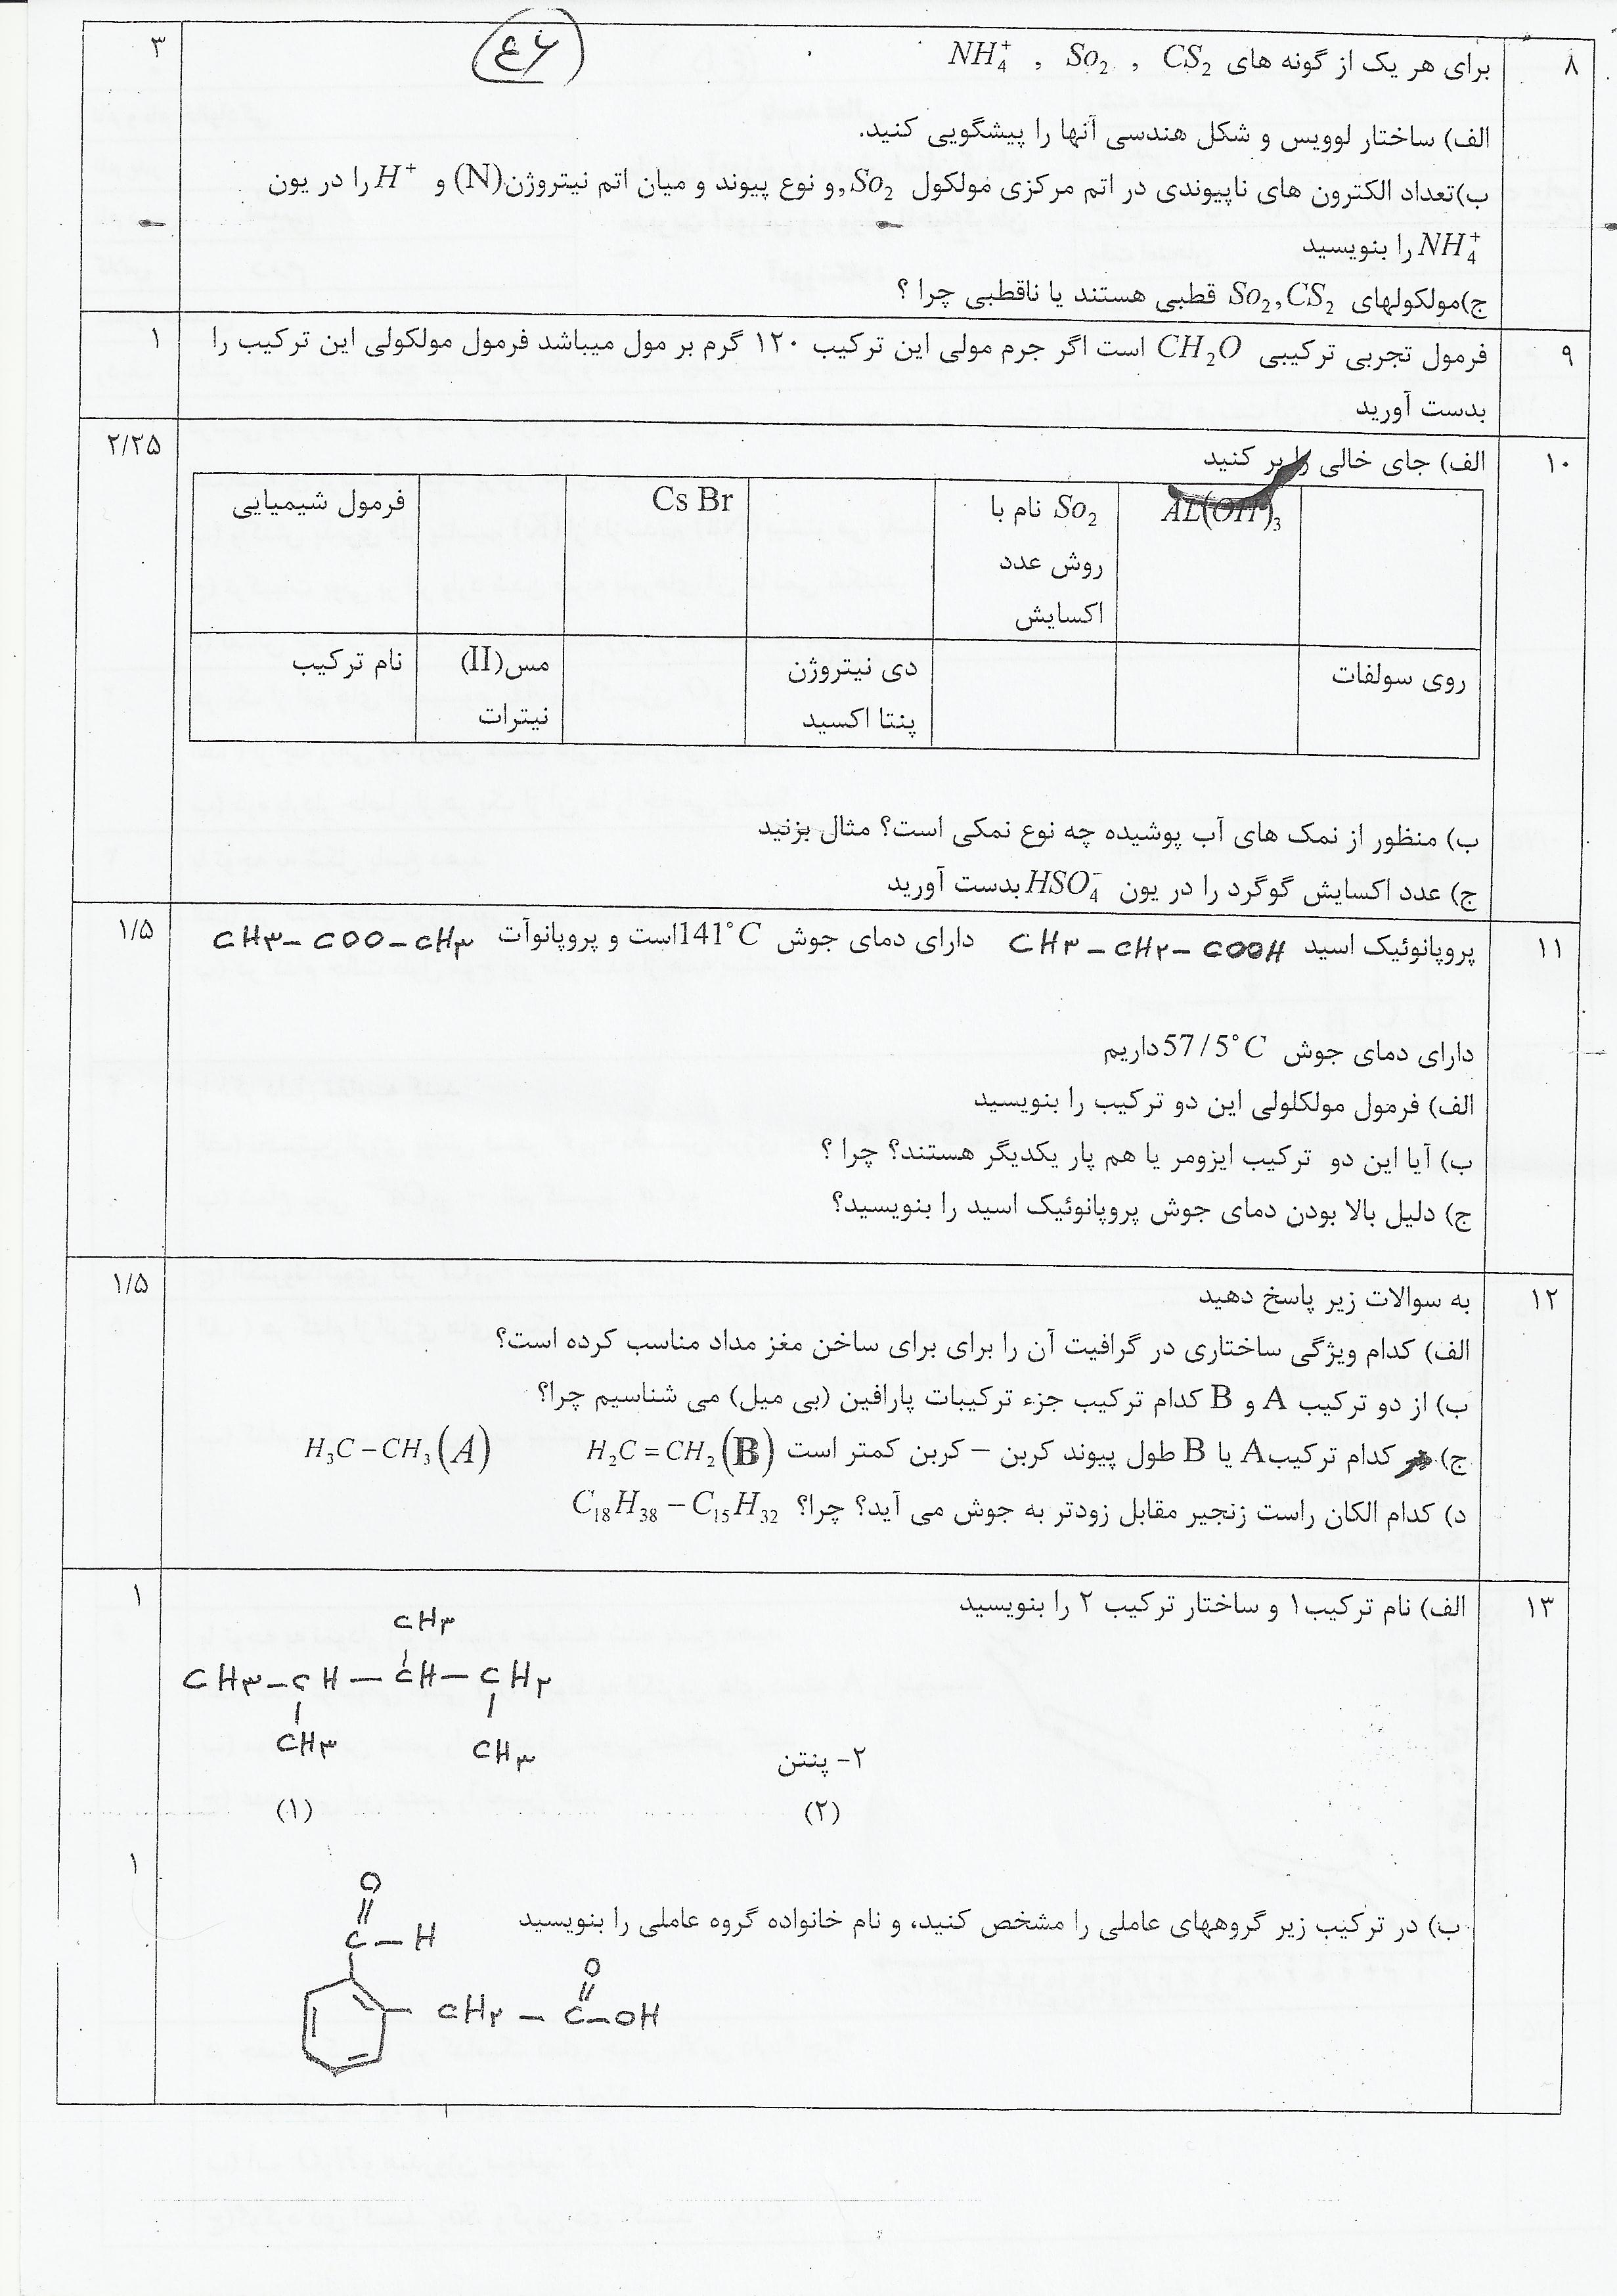 ۸ برای هر یک از گونه های CS₂ , So₂ , NH₄⁺ ۳
الف) ساختار لوویس و شکل هندسی آنها را پیشگویی کنید.
ب)تعداد الکترون های ناپیوندی در اتم مرکزی مولکول So₂,و نوع پیوند و میان اتم نیتروژن(N) و H⁺ را در یون
NH₄⁺ را بنویسید
ج)مولکولهای So₂,CS₂ قطبی هستند یا ناقطبی چرا ؟
۹ فرمول تجربی ترکیبی CH₂O است اگر جرم مولی این ترکیب ۱۲۰ گرم بر مول میباشد فرمول مولکولی این ترکیب را ۱
بدست آورید
۱۰ الف) جای خالی را پر کنید ۲/۲۵
AL(OH)₃ So₂ نام با Cs Br فرمول شیمیایی
روش عدد
اکسایش
روی سولفات دی نیتروژن مس(II) نام ترکیب
پنتا اکسید نیترات
ب) منظور از نمک های آب پوشیده چه نوع نمکی است؟ مثال بزنید
ج) عدد اکسایش گوگرد را در یون HSO₄⁻ بدست آورید
۱۱ پروپانوئیک اسید CH۳ – CH۲ – COOH دارای دمای جوش 141°C است و پروپانوآت CH۳ – COO – CH۳ ۱/۵
دارای دمای جوش 57/5°C داریم
الف) فرمول مولکلولی این دو ترکیب را بنویسید
ب) آیا این دو ترکیب ایزومر یا هم پار یکدیگر هستند؟ چرا ؟
ج) دلیل بالا بودن دمای جوش پروپانوئیک اسید را بنویسید؟
۱۲ به سوالات زیر پاسخ دهید ۱/۵
الف) کدام ویژگی ساختاری در گرافیت آن را برای برای ساخن مغز مداد مناسب کرده است؟
ب) از دو ترکیب A و B کدام ترکیب جزء ترکیبات پارافین (بی میل) می شناسیم چرا؟
ج) کدام ترکیب A یا B طول پیوند کربن – کربن کمتر است H₂C = CH₂(B) H₃C – CH₃(A)
د) کدام الکان راست زنجیر مقابل زودتر به جوش می آید؟ چرا؟ C₁₈H₃₈ – C₁₅H₃₂
۱۳ الف) نام ترکیب۱ و ساختار ترکیب ۲ را بنویسید ۱
CH۳
CH۳ – CH – CH – CH۲
CH۳ CH۳
۲- پنتن
(۲) (۱)
۱
O
ب) در ترکیب زیر گروههای عاملی را مشخص کنید، و نام خانواده گروه عاملی را بنویسید
C – H
O
CH۲ – C – OH